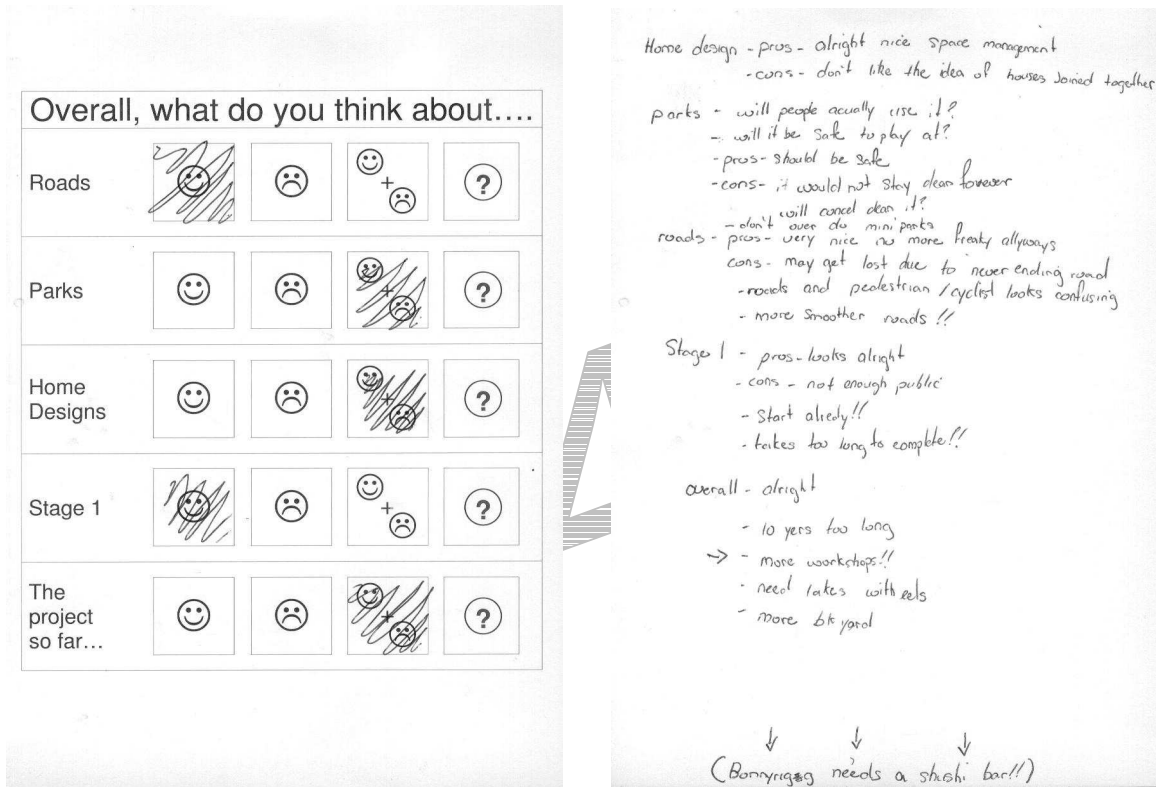 Overall, what do you think about….
Roads
?
Parks
?
Home
Designs
?
Stage 1
?
The
project
so far…
?
Home design - pros - alright nice space management
- cons - don't like the idea of houses Joined together
parks - will people acually use it?
- will it be safe to play at?
- pros - should be safe
- cons - it would not stay clean forever
will concel clean it?
- don't over do mini parks
roads - pros - very nice no more freaky allyways
cons - may get lost due to never ending road
- roads and pedestrian / cyclist looks confusing
- more smoother roads !!
Stage 1 - pros - looks alright
- cons - not enough public
- Start alredy!!
- takes too long to complete!!
overall - alright
- 10 yers too long
→ - more workshops!!
- need lakes with eels
- more bk yard
↓ ↓ ↓
(Bonnyrigg needs a shushi bar!!)